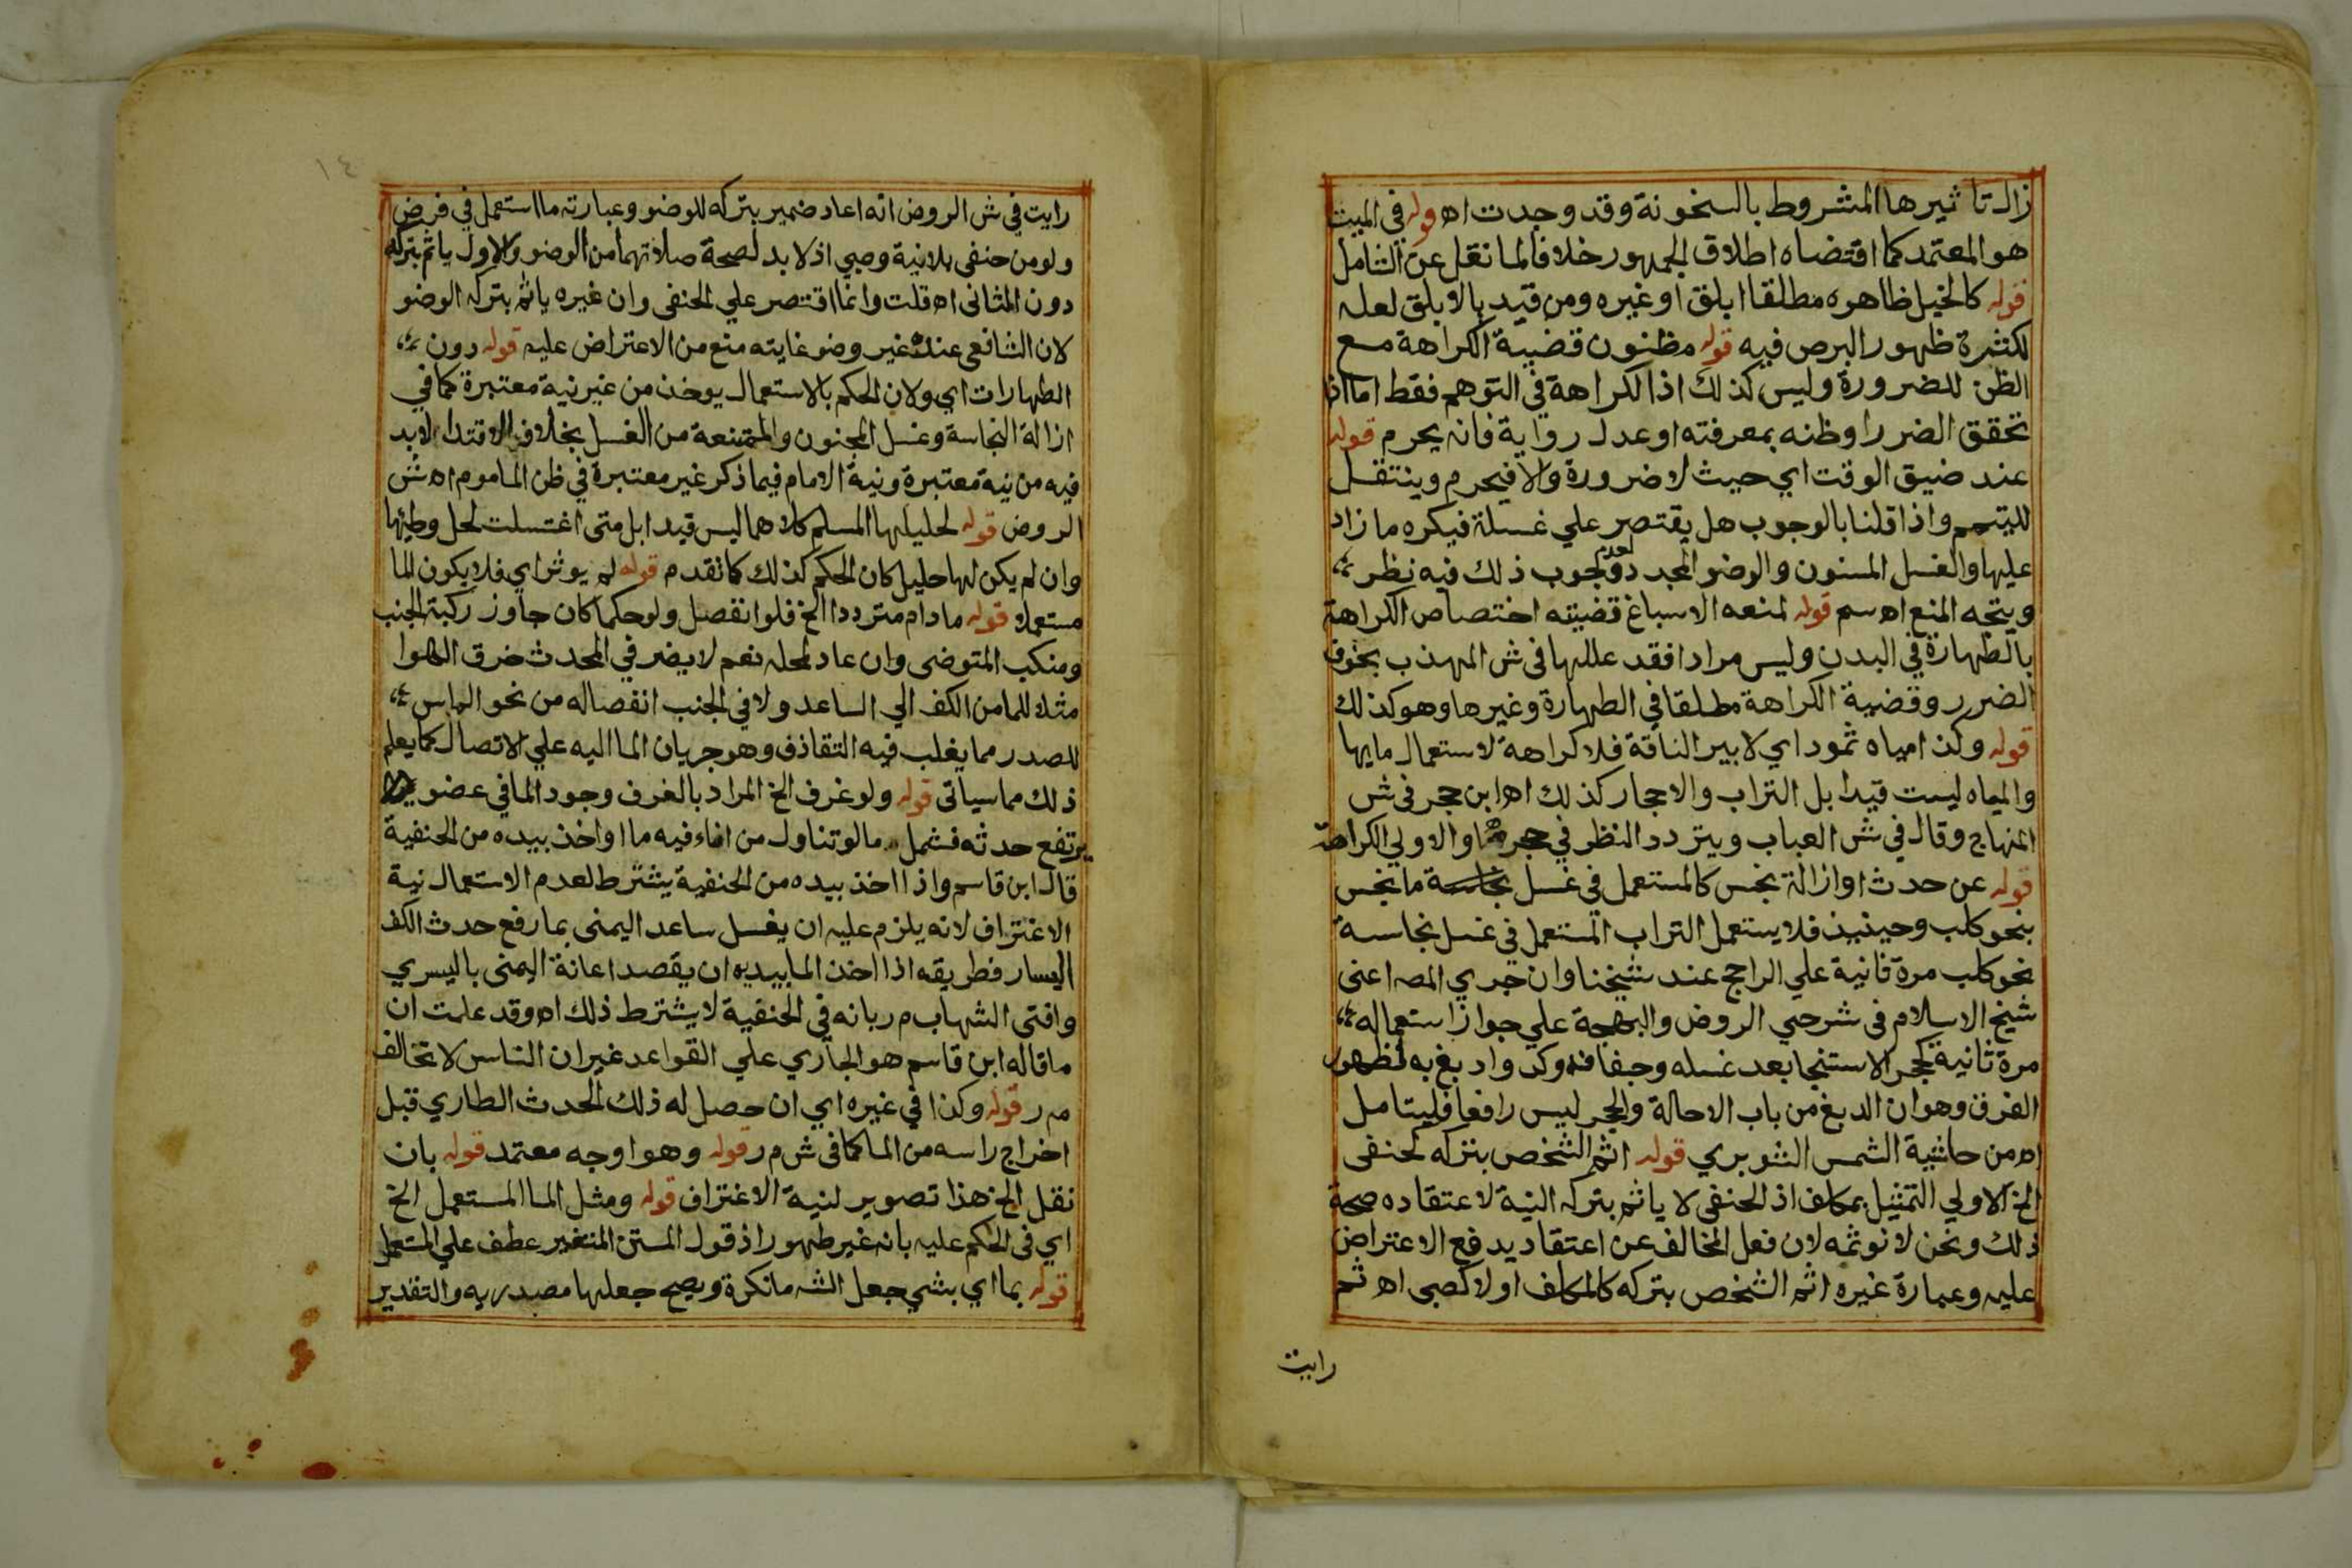 زال تاثيرها المشروط بالسخونة وقد وجدت اه قوله في الميت
هو المعتمد كما اقتضاه اطلاق الجمهور خلافا لما نقل عن الشامل
قوله كالخيل ظاهره مطلقا ابلق او غيره ومن قيد بالابلق لعله
لكثرة ظهور البرص فيه قوله مظنون قضية الكراهة مع
الظن للضرورة وليس كذلك اذ الكراهة في التوهم فقط اما اذا
تحقق الضرر او ظنه بمعرفته او عدل رواية فانه يحرم قوله
عند ضيق الوقت اي حيث لا ضرورة والا فيحرم وينتقل
للتيمم واذا قلنا بالوجوب هل يقتصر علي غسلة فيكره ما زاد
عليها والغسل المسنون والوضو المجدد لعدم وجوب ذلك فيه نظر
ويتجه المنع اه سم قوله لمنعه الاسباغ قضيته اختصاص الكراهة
بالطهارة في البدن وليس مرادا فقد عللها في ش المهذب بخوف
الضرر وقضية الكراهة مطلقا في الطهارة وغيرها وهو كذلك
قوله وكذا مياه ثمود اي لا بير الناقة فلا كراهة لاستعمال مايها
والمياه ليست قيدا بل التراب والاحجار كذلك اه ابن حجر في ش
المنهاج وقال في ش العباب ويتردد النظر في والاولي الكراهة
قوله عن حدث او ازالة نجس كالمستعمل في غسل نجاسة ما نجس
بنحو كلب وحينيذ فلا يستعمل التراب المستعمل في غسل نجاسة
نحو كلب مرة ثانية علي الراجح عند شيخنا وان جري المصه اعني
شيخ الاسلام في شرحي الروض والبهجة علي جواز استعماله
مرة ثانية كحجر الاستنجا بعد غسله وجفافه وكدوا دبغ به لظهور
الفرق وهو ان الدبغ من باب الاحالة والحجر ليس رافعا فليتامل
اه من حاشية الشمس الشوبري قوله اثم الشخص بتركه كحنفي
الخ الاولي التمثيل بمكلف اذ الحنفي لا ياثم بتركه النية لاعتقاده صحة
ذلك ونحن لا نوثمه لان فعل المخالف عن اعتقاد يدفع الاعتراض
عليه وعبارة غيره اثم الشخص بتركه كالمكلف او لا كصبي اه ثم
رايت
١٤
رايت في ش الروض انه اعاد ضمير بتركه للوضو وعبارته ما استعمل في فرض
ولو من حنفي بلا نية وصبي اذ لا بد لصحة صلاتهما من الوضو والاول ياثم بتركه
دون الثاني اه قلت وانما اقتصر علي الحنفي وان غيره ياثم بتركه الوضو
لان الشافعي عنده غير وضو غايته منع من الاعتراض عليه قوله دون
الطهارات اي ولان الحكم بالاستعمال يوخذ من غير نية معتبرة كما في
ازالة النجاسة وغسل المجنون والممتنعة من الغسل بخلاف الاقتدا لا بد
فيه من نية معتبرة ونية الامام فيما ذكر غير معتبرة في ظن الماموم اه ش
الروض قوله لحليلها المسلم كلاهما ليس قيدا بل متي اغتسلت لحل وطيها
وان لم يكن لها حليل كان الحكم كذلك كما تقدم قوله لم يوثر اي فلا يكون الما
مستعملا قوله ما دام مترددا الخ فلو انفصل ولو حكما كان جاوز ركبة الجنب
ومنكب المتوضي وان عاد لمحله نعم لا يضر في المحدث خرق الهوا
مثلا للما من الكف الي الساعد ولا في الجنب انفصاله من نحو الراس
للصدر مما يغلب فيه التقاذف وهو جريان الما اليه علي الاتصال كما يعلم
ذلك مما سياتي قوله ولو غرف الخ المراد بالغرف وجود الما في عضو لم
يرتفع حدثه فشمل ما لو تناول من اناء فيه ما او اخذ بيده من الحنفية
قال ابن قاسم واذا اخذ بيده من الحنفية يشترط لعدم الاستعمال نية
الاغتراف لانه يلزم عليه ان يغسل ساعد اليمني بما رفع حدث الكف
اليسار فطريقه اذا اخذ الما بيديه ان يقصد اعانة اليمني باليسري
وافتي الشهاب م ر بانه في الحنفية لا يشترط ذلك اه وقد علمت ان
ما قاله ابن قاسم هو الجاري علي القواعد غير ان الناس لا تخالف
م ر قوله وكذا في غيره اي ان حصل له ذلك الحدث الطاري قبل
اخراج راسه من الما كما في ش م ر قوله وهو اوجه معتمد قوله بان
نقل الخ هذا تصوير لنية الاغتراف قوله ومثل الما المستعمل الخ
اي في الحكم عليه بانه غير طهور اذ قول المتن المتغير عطف علي المستعمل
قوله بما اي بشي جعل الشه ما نكرة ويصح جعلها مصدريه والتقدير